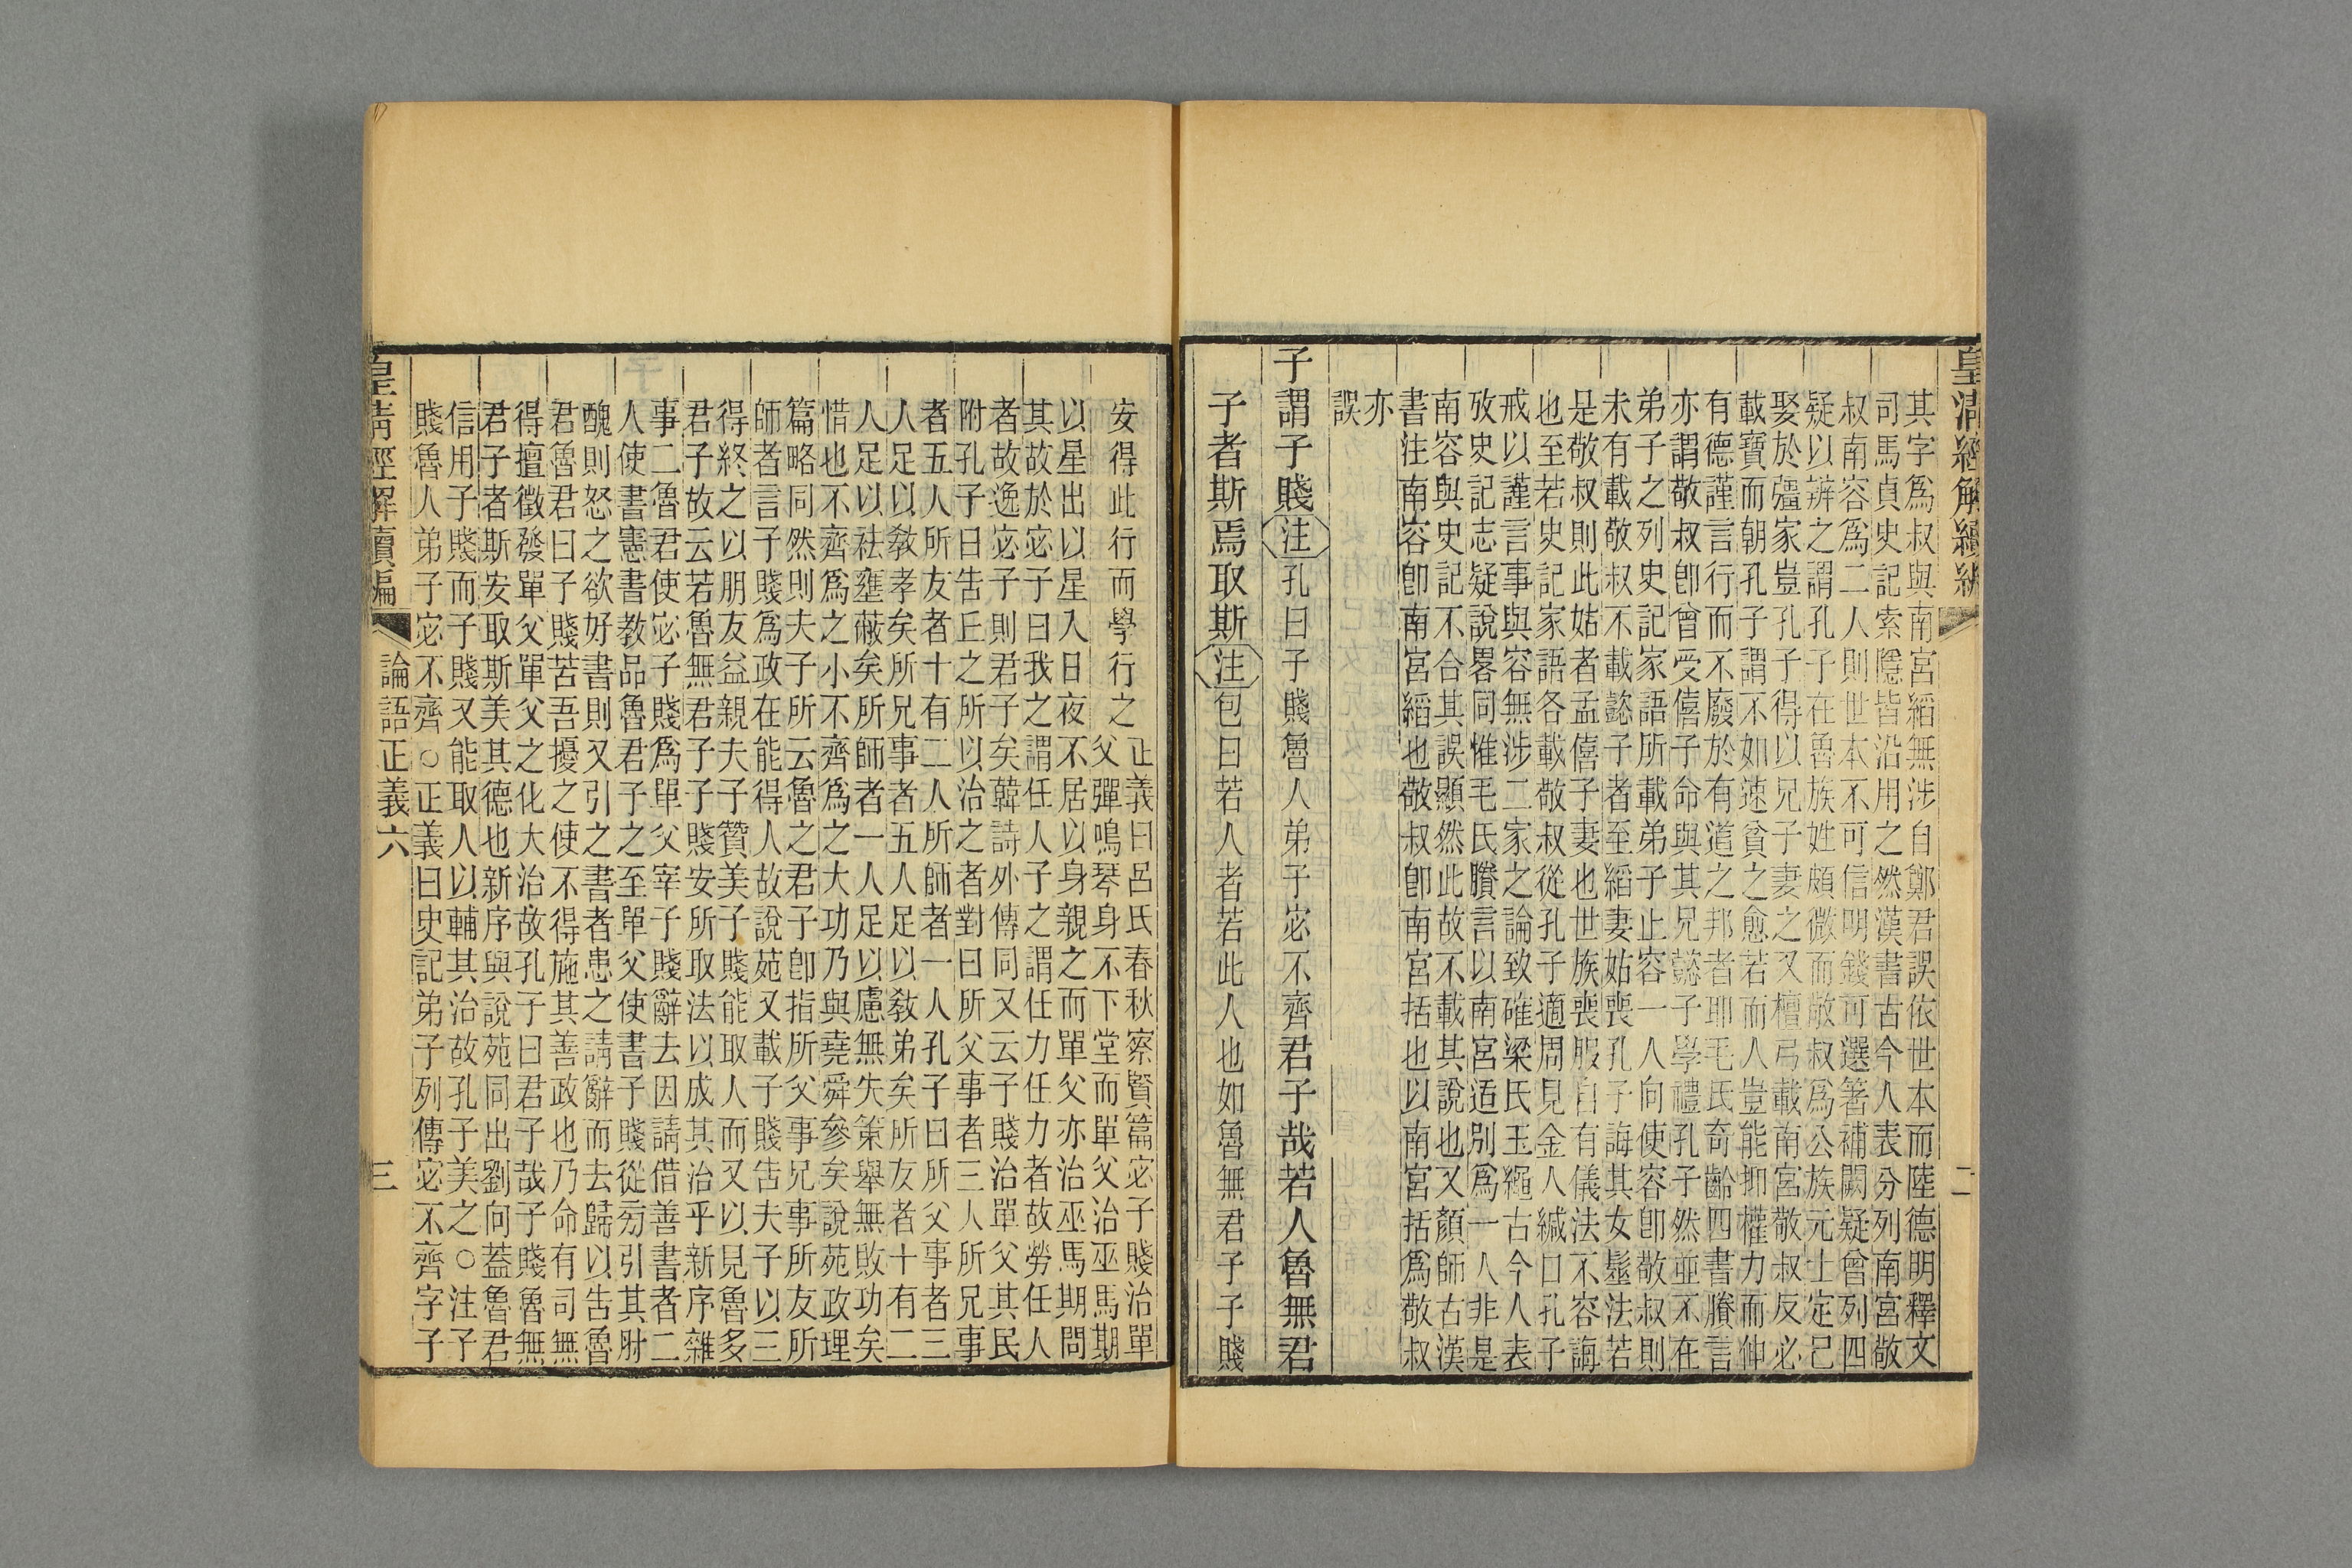 皇清經解續編
二
其字爲叔與南宮縚無涉自鄭君誤依世本而陸德明釋文
司馬貞史記索隱皆沿用之然漢書古今人表分列南宮敬
叔南容爲二人則世本不可信明錢可選箸補闕疑曾列四
疑以辨之謂孔子在魯族姓頗微而敬叔爲公族元士定已
娶於彊家豈孔子得以兄子妻之又檀弓載南宮敬叔反必
載寶而朝孔子謂不如速貧之愈若而人豈能抑權力而伸
有德謹言行而不廢於有道之邦者耶毛氏奇齡四書賸言
亦謂敬叔卽曾受僖子命與其兄懿子學禮孔子然並不在
弟子之列史記家語所載弟子止容一人向使容卽敬叔則
未有載敬叔不載懿子者至縚妻姑喪孔子誨其女髽法若
是敬叔則此姑者孟僖子妻也世族喪服自有儀法不容誨
也至若史記家語各載敬叔從孔子適周見金人緘口孔子
戒以謹言事與容無涉二家之論致確梁氏玉繩古今人表
攷史記志疑說畧同惟毛氏賸言以南宮适別爲一人非是
南容與史記不合其誤顯然此故不載其說也又顏師古漢
書注南容卽南宮縚也敬叔卽南宮括也以南宮括爲敬叔
亦
誤
子謂子賤注孔曰子賤魯人弟子宓不齊君子哉若人魯無君
子者斯焉取斯注包曰若人者若此人也如魯無君子子賤
安得此行而學行之正義曰呂氏春秋察賢篇宓子賤治單
父彈鳴琴身不下堂而單父治巫馬期
以星出以星入日夜不居以身親之而單父亦治巫馬期問
其故於宓子曰我之謂任人子之謂任力任力者故勞任人
者故逸宓子則君子矣韓詩外傳同又云子賤治單父其民
附孔子曰告丘之所以治之者對曰所父事者三人所兄事
者五人所友者十有二人所師者一人孔子曰所父事者三
人足以敎孝矣所兄事者五人足以敎弟矣所友者十有二
人足以祛壅蔽矣所師者一人足以慮無失策舉無敗功矣
惜也不齊爲之小不齊爲之大功乃與堯舜參矣說苑政理
篇略同然則夫子所云魯之君子卽指所父事兄事所友所
師者言子賤爲政在能得人故說苑又載子賤告夫子以三
得終之以朋友益親夫子贊美子賤能取人而又以見魯多
君子故云若魯無君子子賤安所取法以成其治乎新序雜
事二魯君使宓子賤爲單父宰子賤辭去因請借善書者二
人使書憲書教品魯君子之至單父使書子賤從旁引其肘
醜則怒之欲好書則又引之書者患之請辭而去歸以告魯
君魯君曰子賤苦吾擾之使不得施其善政也乃命有司無
得擅徵發單父單父之化大治故孔子曰君子哉子賤魯無
君子者斯安取斯美其德也新序與說苑同出劉向蓋魯君
信用子賤而子賤又能取人以輔其治故孔子美之○注子
賤魯人弟子宓不齊○正義曰史記弟子列傳宓不齊字子
皇清經解續編
論語正義六
三